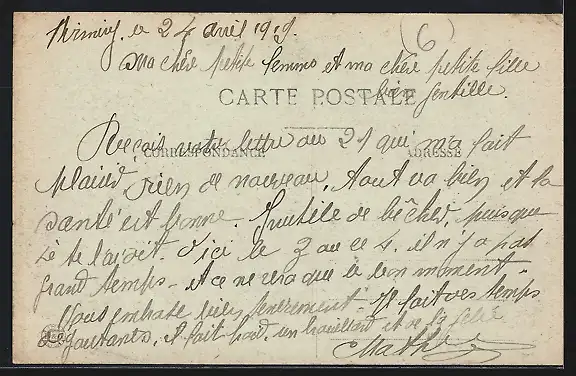 le 24 avril 1919.
6
Ma chère petite femme et ma chère petite fille
bien gentille.
CARTE POSTALE
Reçois votre lettre du 21 qui m'a fait
CORRESPONDANCE
ADRESSE
plaisir. Rien de nouveau. Tout va bien et la
santé est bonne. Inutile de bêcher, puisque
je te le dit. D'ici le 3 ou le 4. il n'y a pas
grand temps - et ce ne sera que le bon moment -
Vous embrasse bien tendrement. Il fait des temps
dégoutants, il fait froid, un brouillard et de la